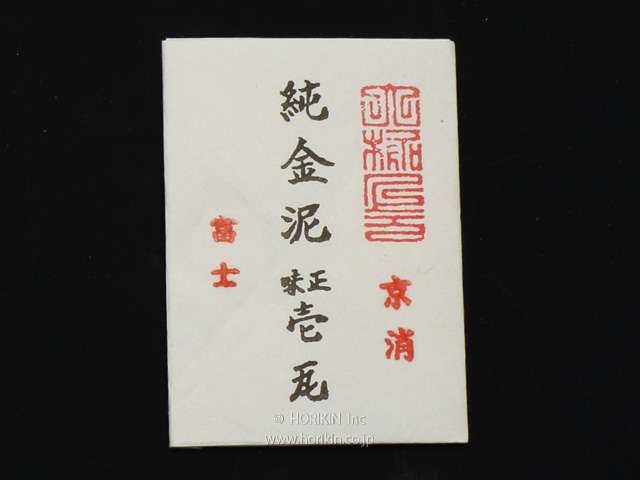 京消
純金泥
正味
壱瓦
富士
© HORIKIN Inc
www.horikin.co.jp